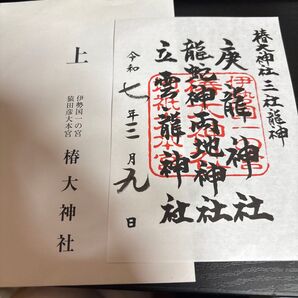 椿大神社 三社龍神
庚龍神社
龍蛇神雨地神社
立雲龍神社
令和七年三月九日
上
伊勢国一の宮
猿田彦大本宮
椿大神社